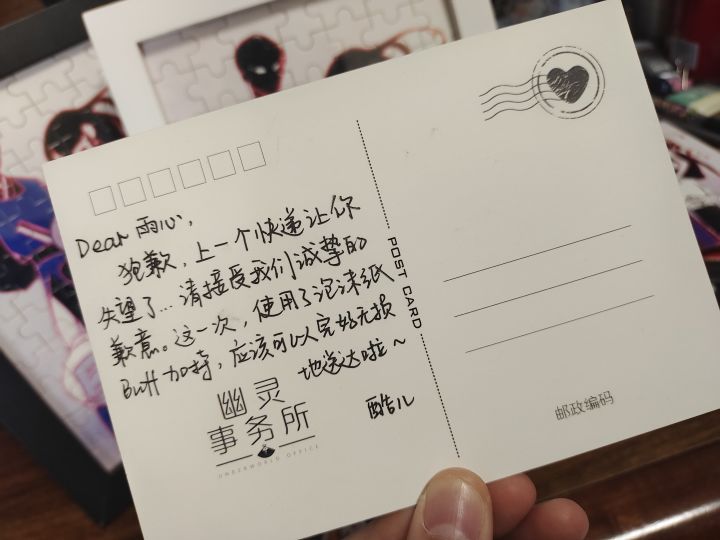 Dear 雨心，
抱歉，上一个快递让你
失望了... 请接受我们诚挚的
歉意。这一次，使用了泡沫纸
Buff 加持，应该可以完好无损
地送达啦～
酷儿
幽灵
事务所
UNDERWORLD OFFICE
POST CARD
邮政编码